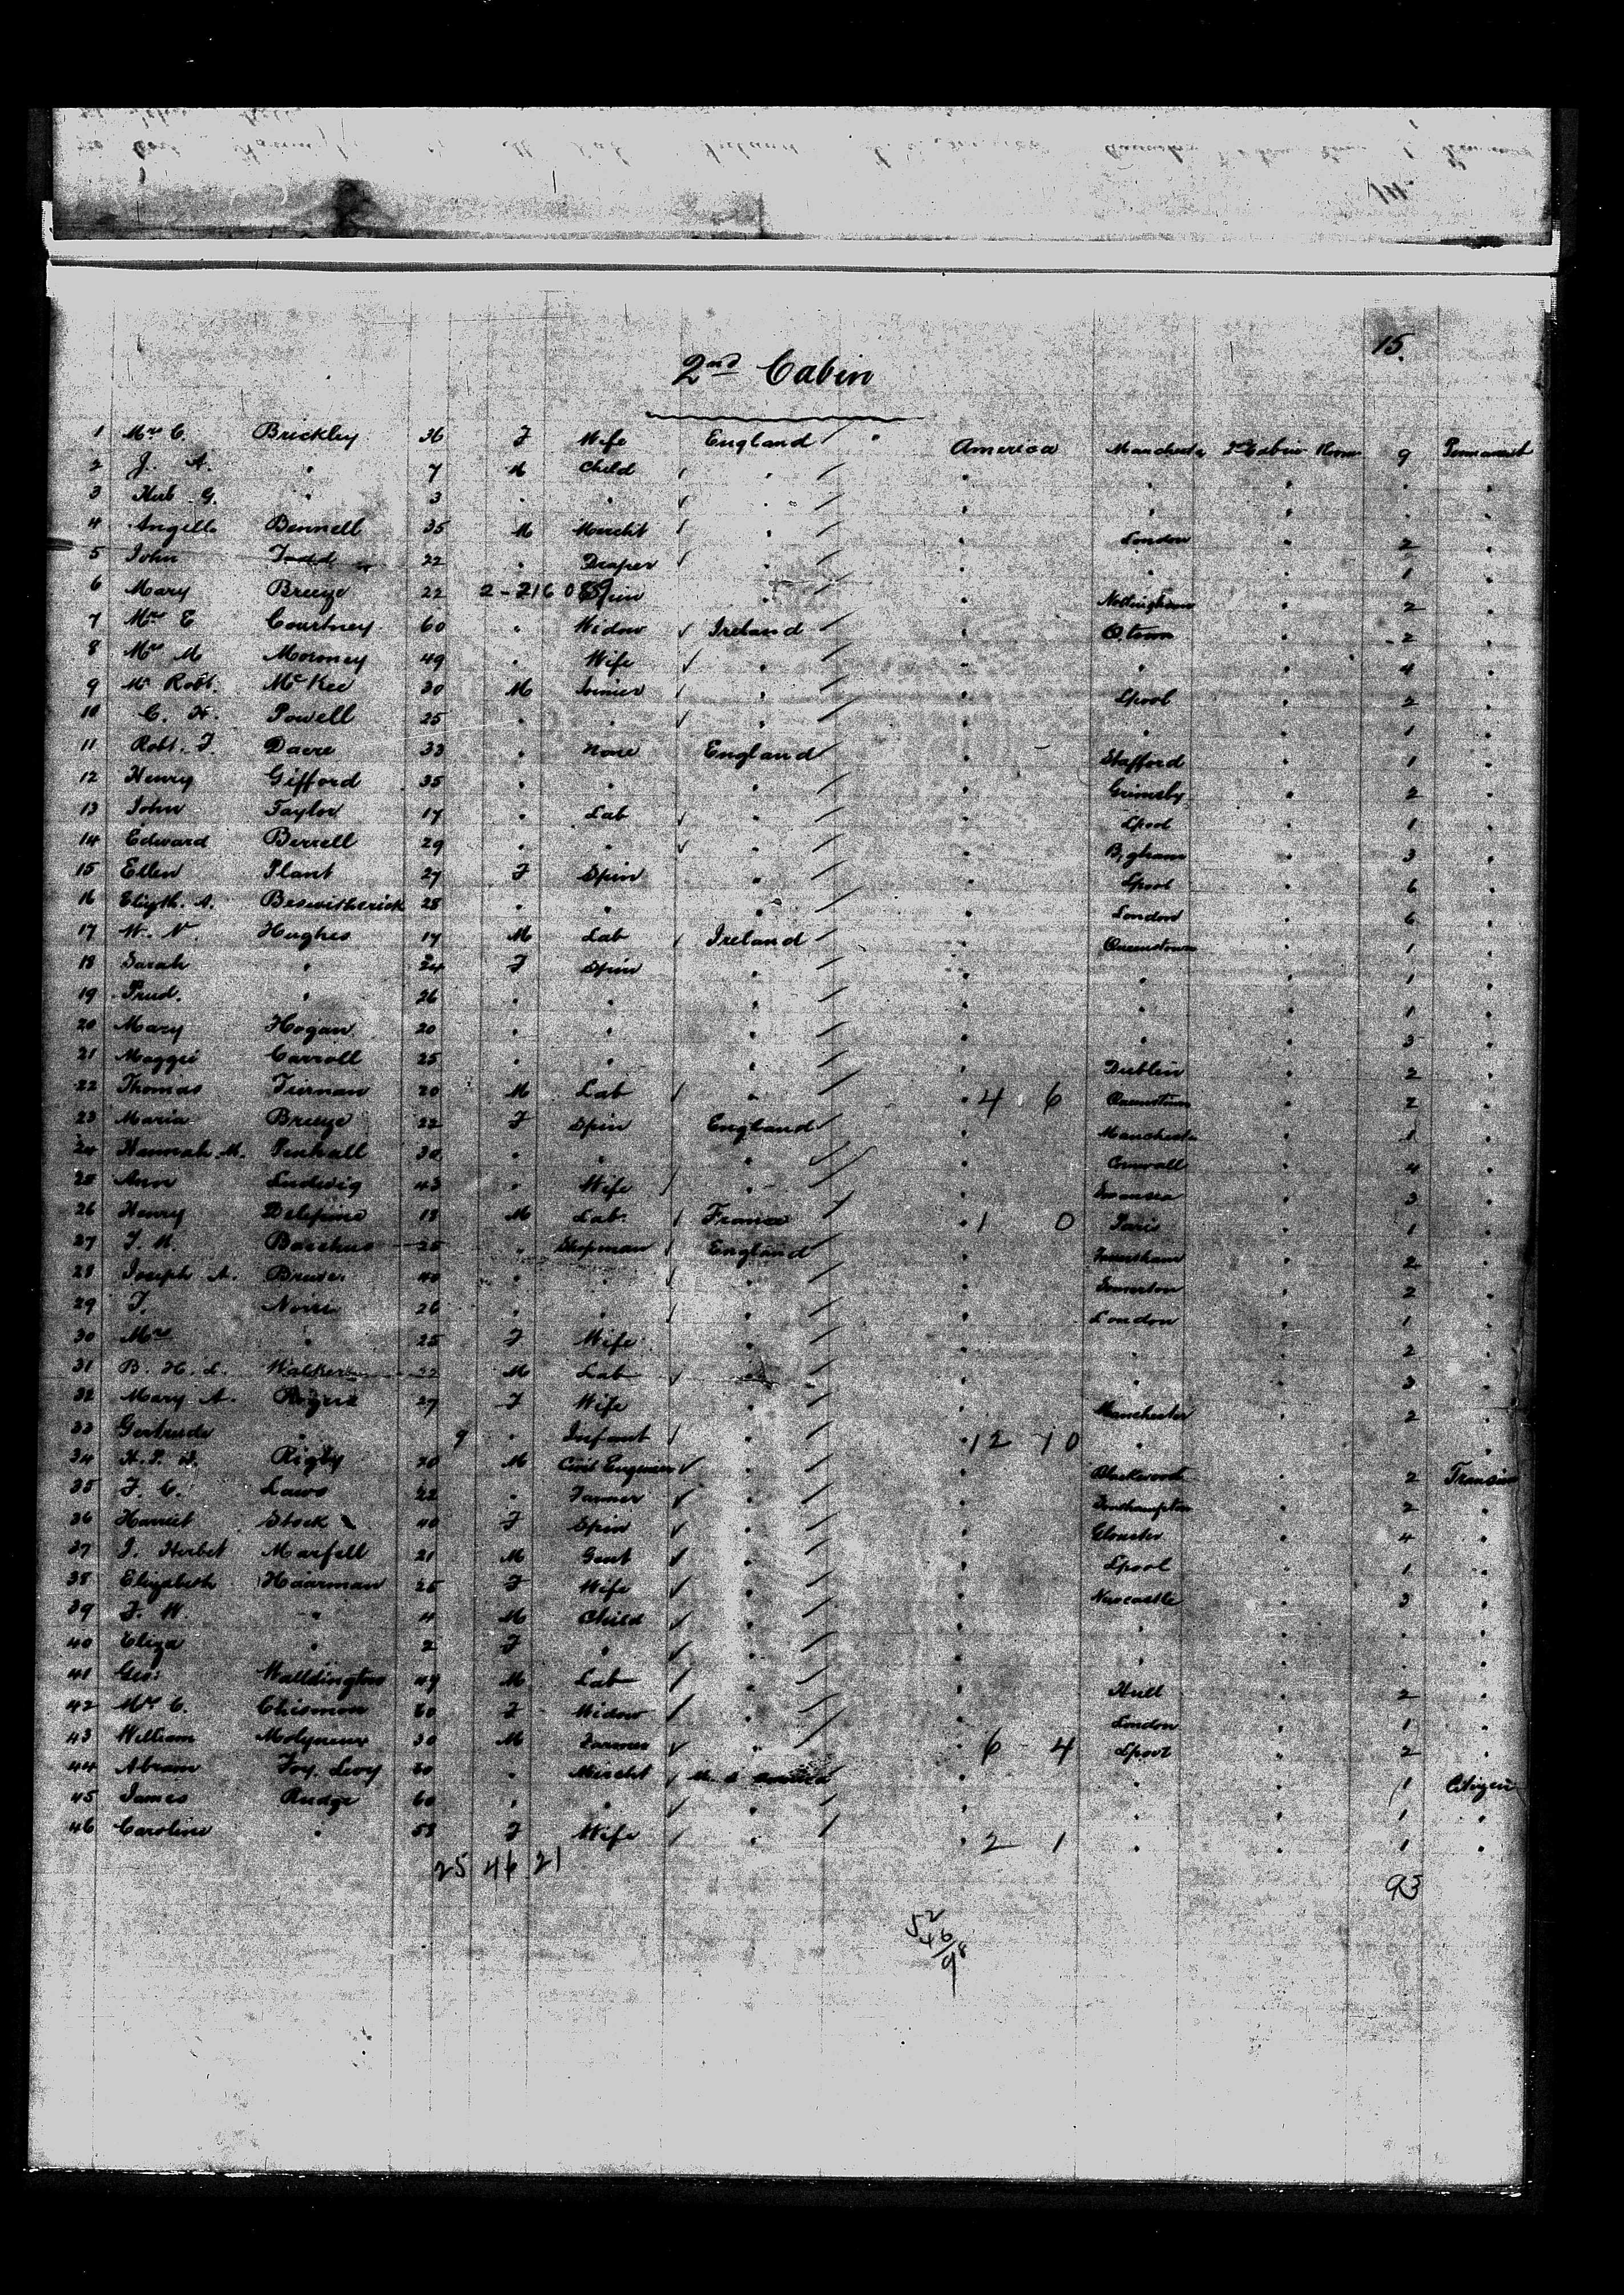 15.
2nd Cabin
1 Mrs C. Brickley 36 F Wife England " America Manchester 2nd Cabin Room 9 Permanent
2 J. A. " 7 M Child " " " " " "
3 Herb G. " 3 " " " " " " " "
4 Angello Bennell 35 M Mercht " " London " 2 "
5 John Todd 22 " Draper " " " " 1 "
6 Mary Breeze 22 2-216089 Spin " " Nottingham " 2 "
7 Mrs E Courtney 60 " Widow Ireland " Qtown " 2 "
8 Mrs M Morney 49 " Wife " " " " 4 "
9 Mr Robt. McKee 30 M Joiner " " Lpool " 2 "
10 C. H. Powell 25 " " " " " 1 "
11 Robt. F. Dacre 33 " None England Stafford " 1 "
12 Henry Gifford 35 " " " " Grimsby " 2 "
13 John Taylor 17 " Lab " " Lpool " 1 "
14 Edward Berrell 29 " " " " B,gham " 3 "
15 Ellen Plant 27 F Spin " " Lpool " 6 "
16 Elizth. A. Beswitherick 28 " " " " London " 6 "
17 W. N. Hughes 17 M Lab Ireland " Queenstown 1 "
18 Sarah " 24 F Spin " " " " 1 "
19 Prud. " 26 " " " " " " 1 "
20 Mary Hogan 20 " " " " " " 3 "
21 Maggie Carroll 25 " " " " Dublin " 2 "
22 Thomas Tiernan 20 M Lab " " 4 6 Queenstown " 2 "
23 Maria Breeze 22 F Spin England " Manchester 1 "
24 Hannah M. Penhall 30 " " " " Cornwall " 4 "
25 Ann Ludwig 43 " Wife " " Swansea " 3 "
26 Henry Delepine 18 M Lab. France " 1 0 Paris " 1 "
27 Bacchus 25 " Shopman England " 2 "
28 Joseph A. 40 " " " " Somerton " 2 "
29 26 " " " " London " 1 "
30 Mrs " 25 F Wife " " " " 2 "
31 B. H. L. Walker 22 M Lab " " " " 3 "
32 Mary A. Rogers 27 F Wife " " Manchester " 2 "
33 Gertrude " 9 " Infant " " 12 10 " " "
34 Rigby 20 M Civil Engineer " " " 2 Transient
35 F. C. Laws 22 " Farmer " " Southampton " 2 "
36 Harriet Stock 40 F Spin " " Gloucter " 4 "
37 J. Herbet Marfell 21 M Gent " " Lpool " 1 "
38 Elizabeth Haarman 25 F Wife " " Newcastle " 3 "
39 F. W. " 4 M Child " " " " " "
40 Eliza " 2 F " " " " " " "
41 Geo: Walldington 49 M Lab " " Hull " 2 "
42 Mrs C. Chisman 60 F Widow " " London " 1 "
43 William Molyneux 30 M Farmer " " 6 4 Lpool " 2 "
44 Abram Levy 30 " Mercht U. S. America " " " 1 Citizen
45 James Rudge 60 " " " " " " 1 "
46 Caroline " 53 F Wife " " 2 1 " " 1 "
25 46 21
93
52
46
98